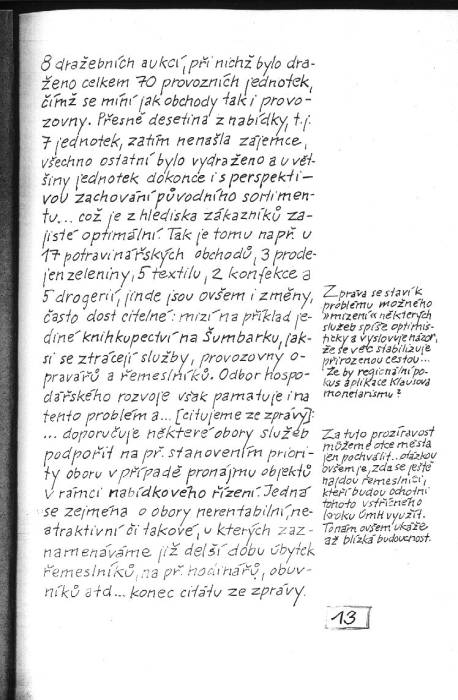 8 dražebních aukcí, při nichž bylo dra-
ženo celkem 70 provozních jednotek,
čímž se míní jak obchody tak i provo-
zovny. Přesně desetina z nabídky, t.j.
7 jednotek, zatím nenašla zájemce,
všechno ostatní bylo vydraženo a u vět-
šiny jednotek dokonce i s perspekti-
vou zachování původního sortimen-
tu... což je z hlediska zákazníků za-
jisté optimální. Tak je tomu např. u
17 potravinářských obchodů, 3 prode-
jen zeleniny, 5 textilu, 2 konfekce a
5 drogerií, jinde jsou ovšem i změny,
často dost citelné: mizí na příklad je-
diné knihkupectví na Šumbarku, jak-
si se ztrácejí služby, provozovny o-
pravářů a řemeslníků. Odbor hospo-
dářského rozvoje však pamatuje i na
tento problém a... [citujeme ze zprávy]:
... doporučuje některé obory služeb
podpořit na př. stanovením priori-
ty oboru v případě pronájmu objektů
v rámci nabídkového řízení. Jedná
se zejména o obory nerentabilní, ne-
atraktivní či takové, u kterých zaz-
namenáváme již delší dobu úbytek
řemeslníků, na př. hodinářů, obuv-
níků atd... konec citátu ze zprávy.
Zpráva se staví k
problému možného
»mizení« některých
služeb spíše optimis-
ticky a vyslovuje názor,
že se věc stabilizuje
přirozenou cestou...
Že by regionální po-
kus aplikace Klausova
monetarismu?
Za tuto prozíravost
můžeme otce města
jen pochválit... otázkou
ovšem je, zda se ještě
najdou řemeslníci,
kteří budou ochotni
tohoto vstřícného
kroku ÚMH využít.
To nám ovšem ukáže
až blízká budoucnost.
13